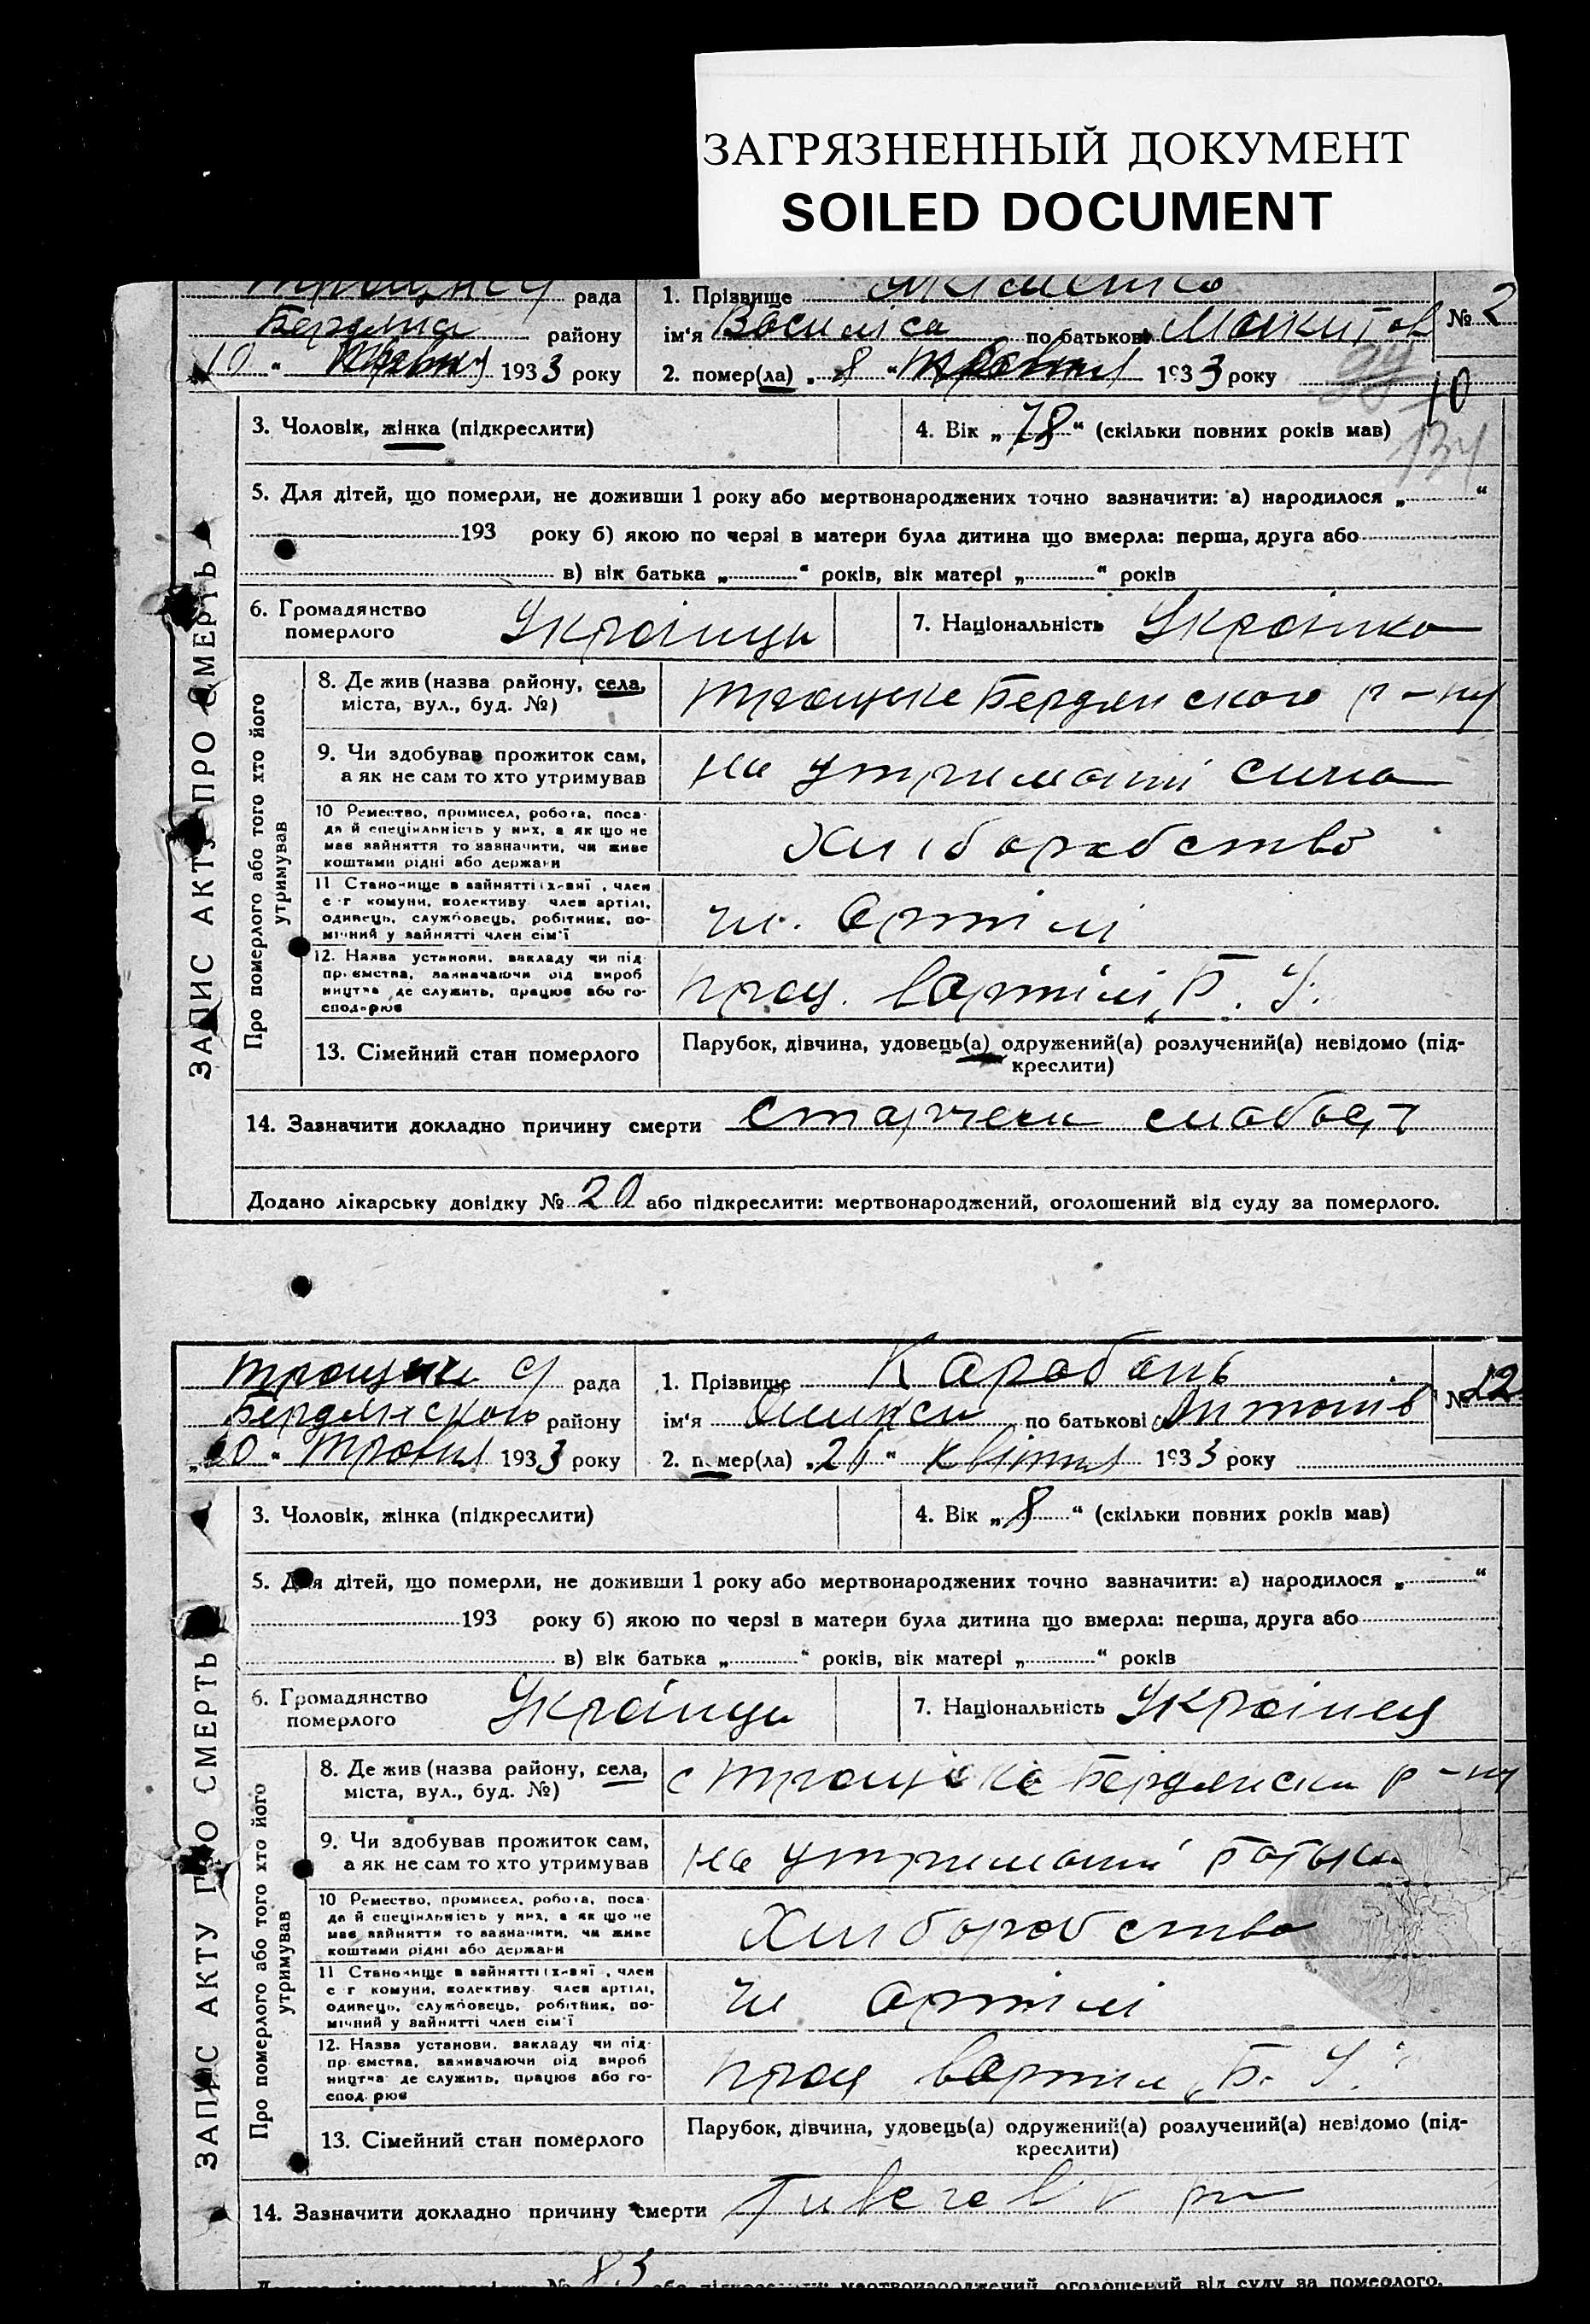 ЗАГРЯЗНЕННЫЙ ДОКУМЕНТ
SOILED DOCUMENT
рада
1. Прізвище
№ 2
району
ім'я Василіса по батькові
10 " Травня 1933 року
2. помер(ла) „ 8 " Травня 1933 року
10
134
3. Чоловік, жінка (підкреслити)
4. Вік „ 78 " (скільки повних років мав)
5. Для дітей, що померли, не доживши 1 року або мертвонароджених точно зазначити: а) народилося „ "
193 року б) якою по черзі в матери була дитина що вмерла: перша, друга або
в) вік батька „ " років, вік матері „ " років
6. Громадянство померлого
Україна
7. Національність Українка
8. Де жив (назва району, села, міста, вул., буд. №)
Троцьке Бердянського р-ну
9. Чи здобував прожиток сам, а як не сам то хто утримував
на утриманні сина
10 Ремество, промисел, робота, посада й спеціяльність у них, а як що не має зайняття то зазначити, чи живе коштами рідні або держави
Хліборобство
11 Становище в зайнятті член с г комуни, колективу член артілі, одинець, службовець, робітник, помічний у зайнятті член сім'ї
чл. Артілі
12. Назва установи, закладу чи підприємства, зазначаючи від виробництва де служить, працює або господарює
прац. в Артілі „Б. У."
13. Сімейний стан померлого
Парубок, дівчина, удовець(а) одружений(а) розлучений(а) невідомо (підкреслити)
14. Зазначити докладно причину смерти
Додано лікарську довідку № 20 або підкреслити: мертвонароджений, оголошений від суду за померлого.
ЗАПИС АКТУ ПРО СМЕРТЬ
Про померлого або того хто його утримував
рада
1. Прізвище Карабань
№ 12
Бердянського району
ім'я по батькові Антонів
„ 20 " Травня 1933 року
2. помер(ла) „ 26 " Квітня 1933 року
3. Чоловік, жінка (підкреслити)
4. Вік „ 8 " (скільки повних років мав)
5. Для дітей, що померли, не доживши 1 року або мертвонароджених точно зазначити: а) народилося „ "
193 року б) якою по черзі в матери була дитина що вмерла: перша, друга або
в) вік батька „ " років, вік матері „ " років
6. Громадянство померлого
Україна
7. Національність Українец
8. Де жив (назва району, села, міста, вул., буд. №)
с Троцьке Бердянськ р-ну
9. Чи здобував прожиток сам, а як не сам то хто утримував
на утриманні батька
10 Ремество, промисел, робота, посада й спеціяльність у них, а як що не має зайняття то зазначити, чи живе коштами рідні або держави
Хліборобство
11 Становище в зайнятті член с г комуни, колективу член артілі, одинець, службовець, робітник, помічний у зайнятті член сім'ї
чл артілі
12. Назва установи, закладу чи підприємства, зазначаючи від виробництва де служить, працює або господарює
прац в Артілі „Б. У."
13. Сімейний стан померлого
Парубок, дівчина, удовець(а) одружений(а) розлучений(а) невідомо (підкреслити)
14. Зазначити докладно причину смерти
№ 83 або мертвонароджений, оголошений від суду за померлого.
ЗАПИС АКТУ ПРО СМЕРТЬ
Про померлого або того хто його утримував